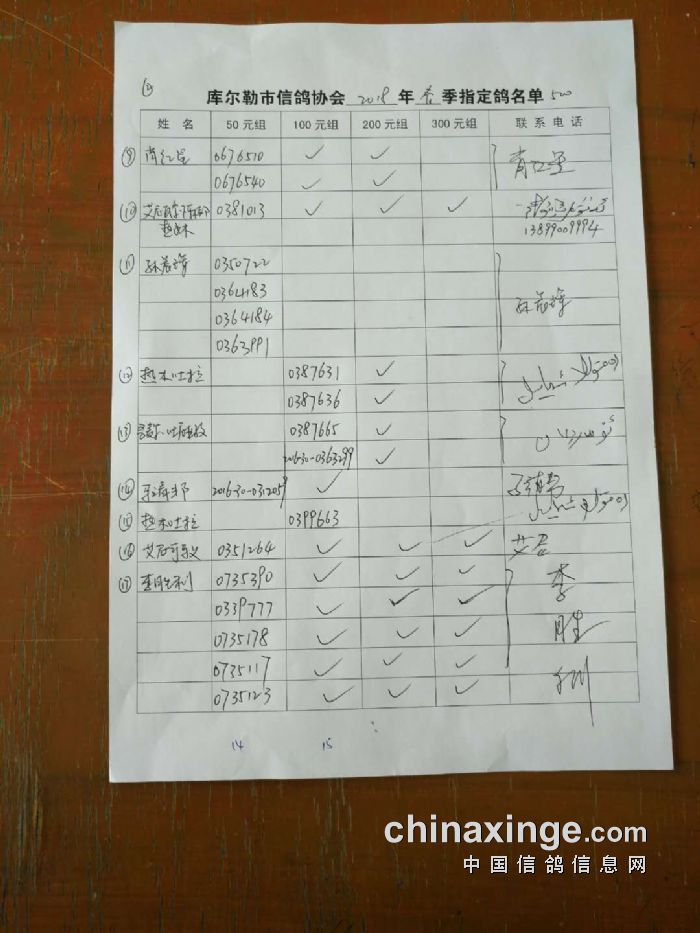 ②
库尔勒市信鸽协会 2018 年 春 季指定鸽名单 500
姓 名 50 元组 100 元组 200 元组 300 元组 联 系 电 话
⑨ 肖红星 0676510 ✓ ✓ 肖红星
0676540 ✓ ✓
⑩ 0381013 ✓ ✓ ✓
热木 13899009994
⑪ 0350722
0364183
0364184
0363991
⑫ 热木吐拉 0387631 ✓
0387636 ✓
⑬ 0387665 ✓
2016-30-0363299 ✓
⑭ 2016-30-0312059 ✓
⑮ 热木吐拉 0399663
⑯ 0351264 ✓ ✓ ✓
⑰ 李胜利 0735390 ✓ ✓ ✓ 李
0339777 ✓ ✓ ✓
0735178 ✓ ✓ ✓ 胜
0735117 ✓ ✓ ✓
0735123 ✓ ✓ ✓ 利
14 15
chinaxinge.com
中国信鸽信息网